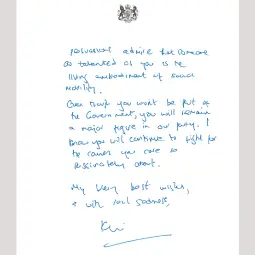 personal advice that someone
as talented as you is the
living embodiment of social
mobility.
Even though you won't be part of
the Government, you will remain
a major figure in our party. I
know you will continue to fight for
the causes you care so
passionately about.
My very best wishes,
& with real sadness,